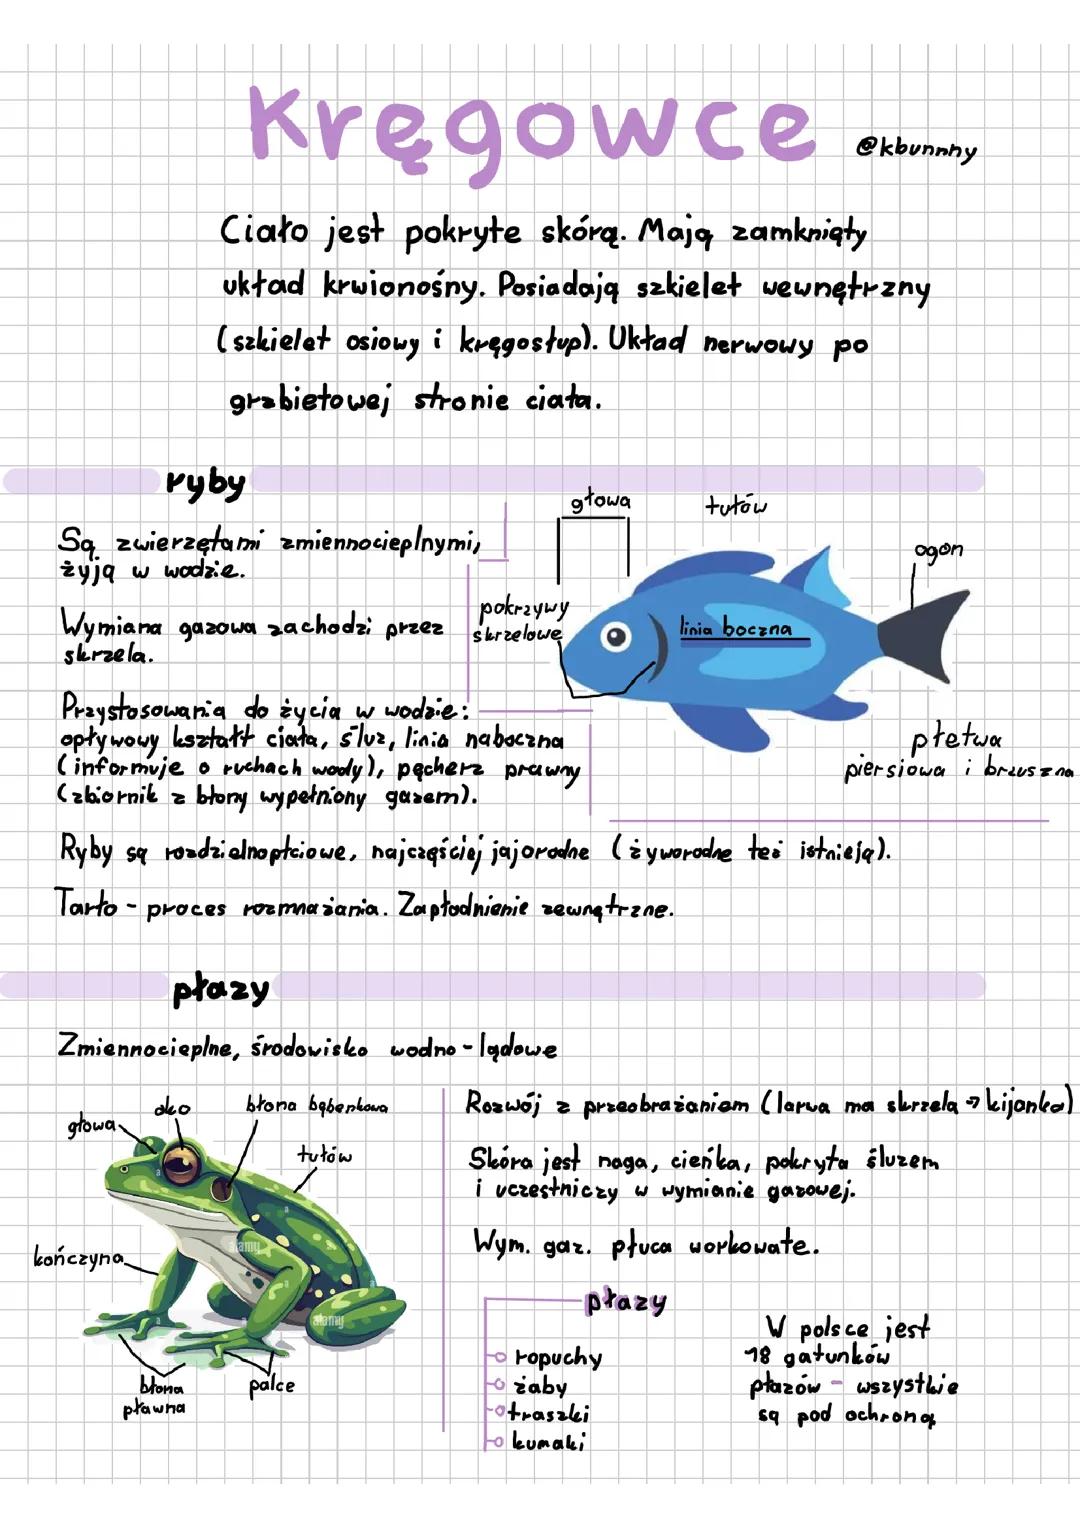 Kręgowce
@kbunnny
Ciało jest pokryte skórą. Mają zamknięty
układ krwionośny. Posiadają szkielet wewnętrzny
(szkielet osiowy i kręgosłup). Układ nerwowy po
grzbietowej stronie ciała.
ryby
Są zwierzętami zmiennocieplnymi,
żyją w wodzie.
Wymiana gazowa zachodzi przez
skrzela.
Przystosowania do życia w wodzie:
opływowy kształt ciała, śluz, linia naboczna
(informuje o ruchach wody), pęcherz prawny
(zbiornik z błony wypełniony gazem).
głowa
tułów
ogon
pokrzywy
skrzelowe
linia boczna
płetwa
piersiowa i brzuszna
Ryby są rozdzielnopłciowe, najczęściej jajorodne (żyworodne też istnieją).
Tarło - proces rozmnażania. Zapłodnienie zewnętrzne.
płazy
Zmiennocieplne, środowisko wodno - lądowe
głowa
oko
błona bębenkowa
tułów
kończyna
błona
pławna
palce
alamy
alamy
Rozwój z przeobrażaniem (larwa ma skrzela → kijanka)
Skóra jest naga, cieńka, pokryta śluzem
i uczestniczy w wymianie gazowej.
Wym. gaz. płuca workowate.
płazy
ropuchy
żaby
traszki
kumaki
W polsce jest
18 gatunków
płazów - wszystkie
są pod ochroną